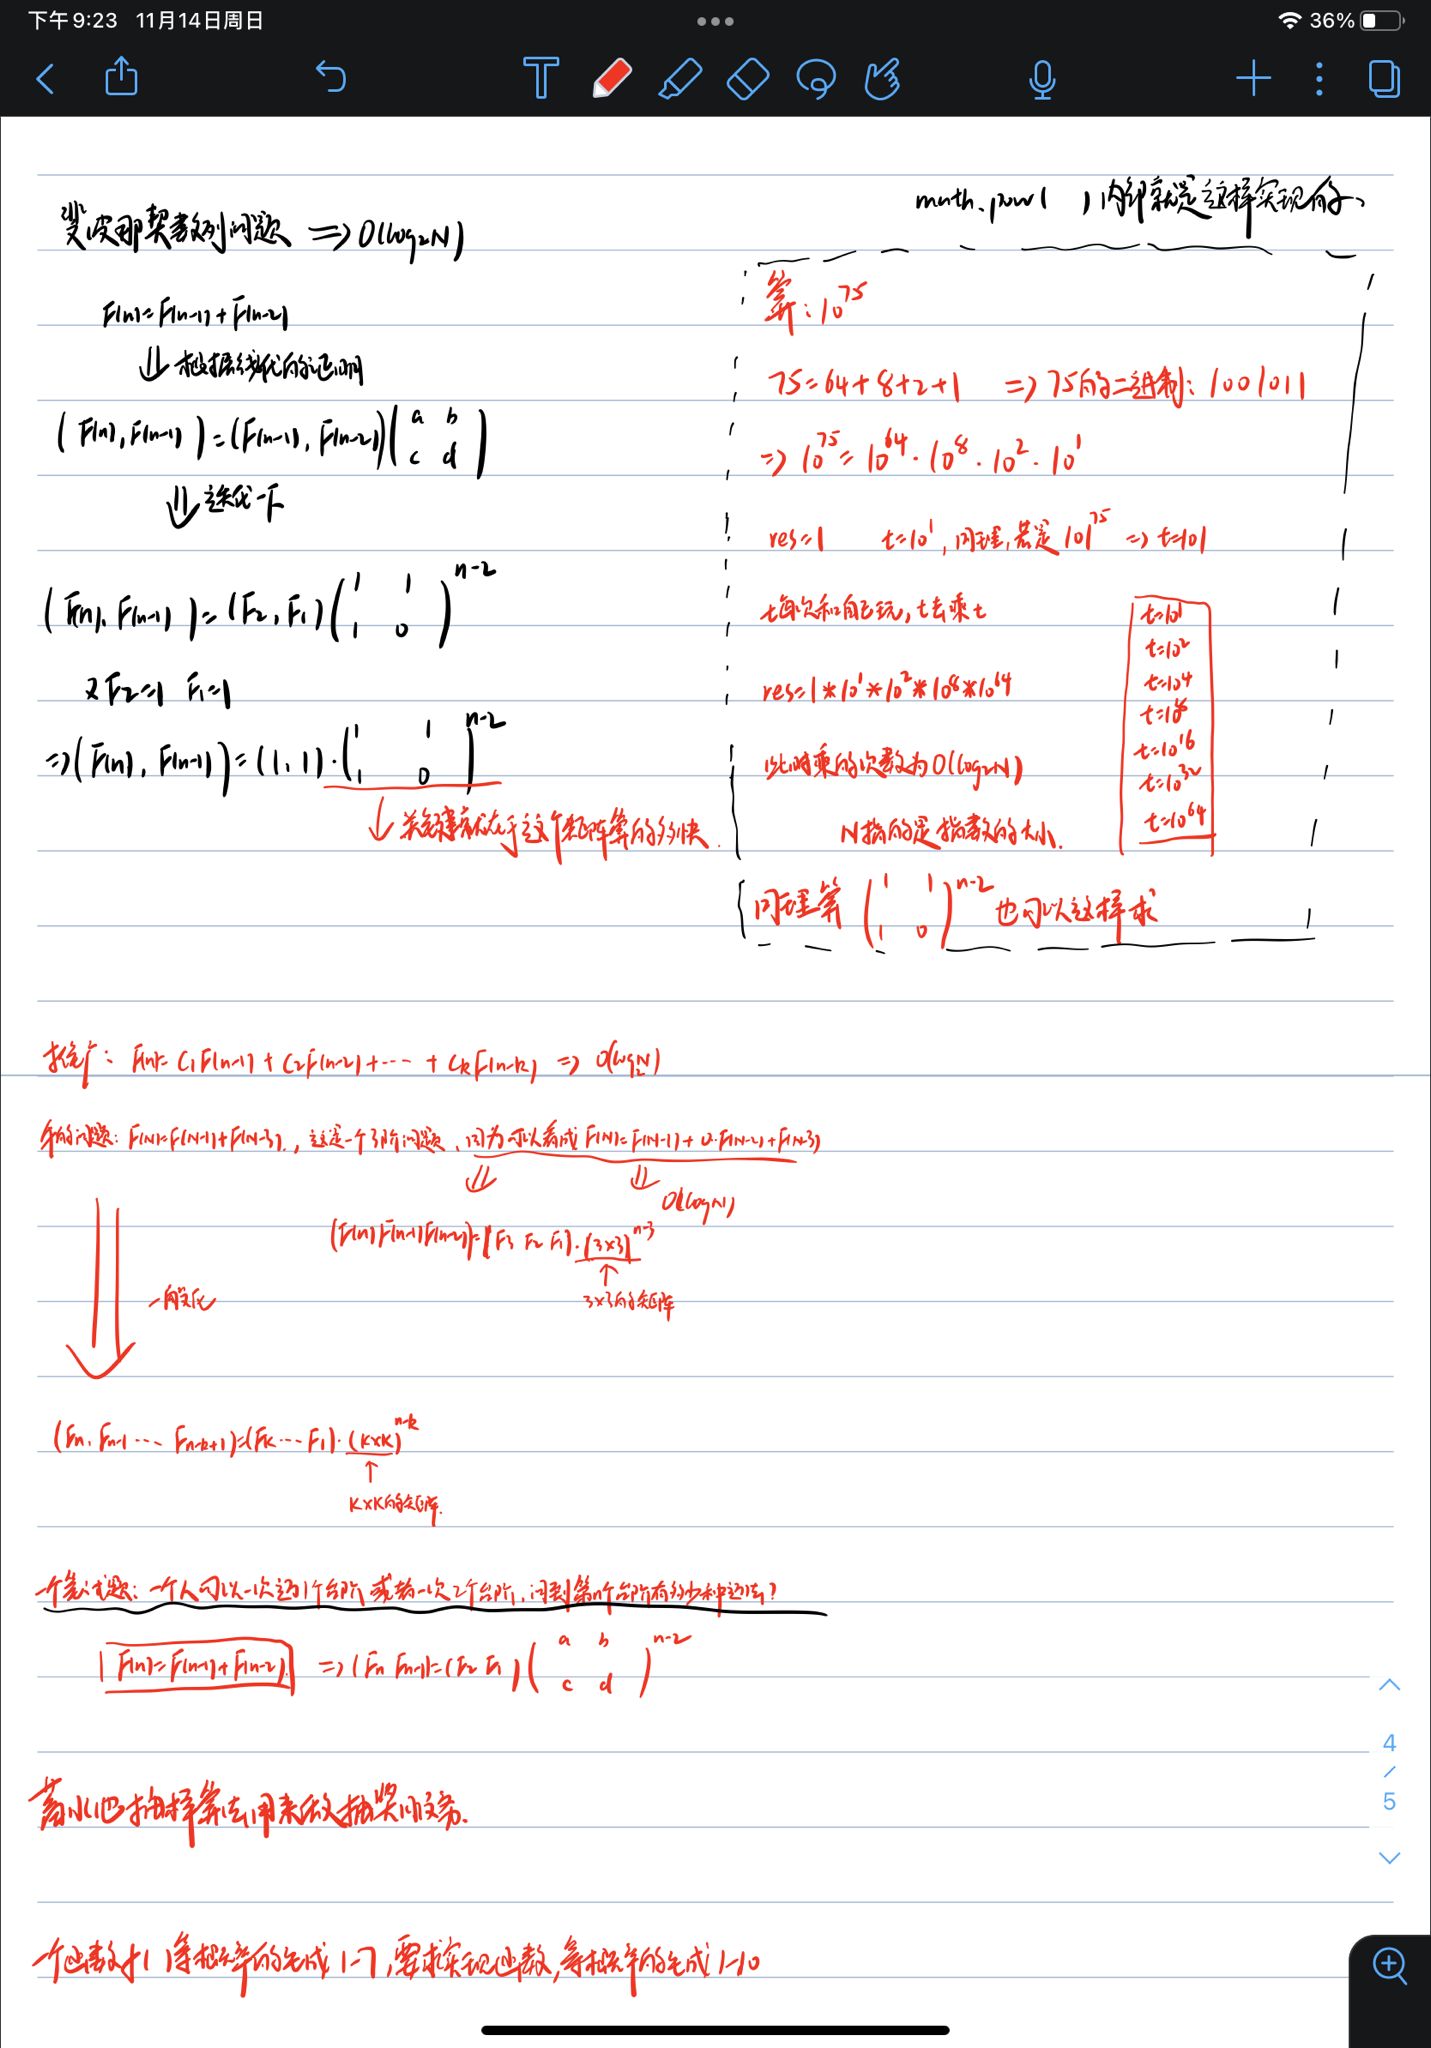 下午9:23 11月14日周日
36%
斐波那契数列问题 => O(log₂N)
F(n)=F(n-1)+F(n-2)
⇓ 根据线代的证明
(F(n), F(n-1))=(F(n-1), F(n-2))(a b
c d)
⇓ 迭代一下
(F(n), F(n-1))=(F2, F1)(1 1
1 0)^n-2
又F2=1 F1=1
=>(F(n), F(n-1))=(1, 1)·(1 1
1 0)^n-2
↓ 关键就在于这个矩阵算的多快.
math.pow( )内部就是这样实现的、
算: 10^75
75=64+8+2+1 => 75的二进制: 1001011
=> 10^75= 10^64·10^8·10^2·10^1
res=1 t=10^1, 同理,若是101^75 => t=101
t每次和自己玩, t去乘t
res=1*10^1*10^2*10^8*10^64
此时乘的次数为O(log₂N)
N指的是指数的大小.
t=10^1
t=10^2
t=10^4
t=10^8
t=10^16
t=10^32
t=10^64
同理算(1 1
1 0)^n-2 也可以这样求
推广: F(n)= C1F(n-1)+C2F(n-2)+···+CkF(n-k) => O(log₂N)
牛的问题: F(N)=F(N-1)+F(N-3)., 这是一个3阶问题, 因为可以看成F(N)=F(N-1)+0·F(N-2)+F(N-3)
⇓ ⇓ O(logN)
(F(n) F(n-1) F(n-2))=(F3 F2 F1)·(3×3)^n-3
↑
3×3的矩阵
一般化
(Fn, Fn-1 ··· Fn-k+1)=(Fk···F1)·(K×K)^n-k
↑
K×K的矩阵.
一个笔试题: 一个人可以一次迈1个台阶 或者一次2个台阶, 问到第n个台阶有多少种迈法?
F(n)=F(n-1)+F(n-2). =>(Fn Fn-1)=(F2 F1)(a b
c d)^n-2
蓄水池抽样算法用来做抽奖服务.
一个函数f( )等概率的生成1-7, 要求实现函数, 等概率的生成1-10
4
/
5